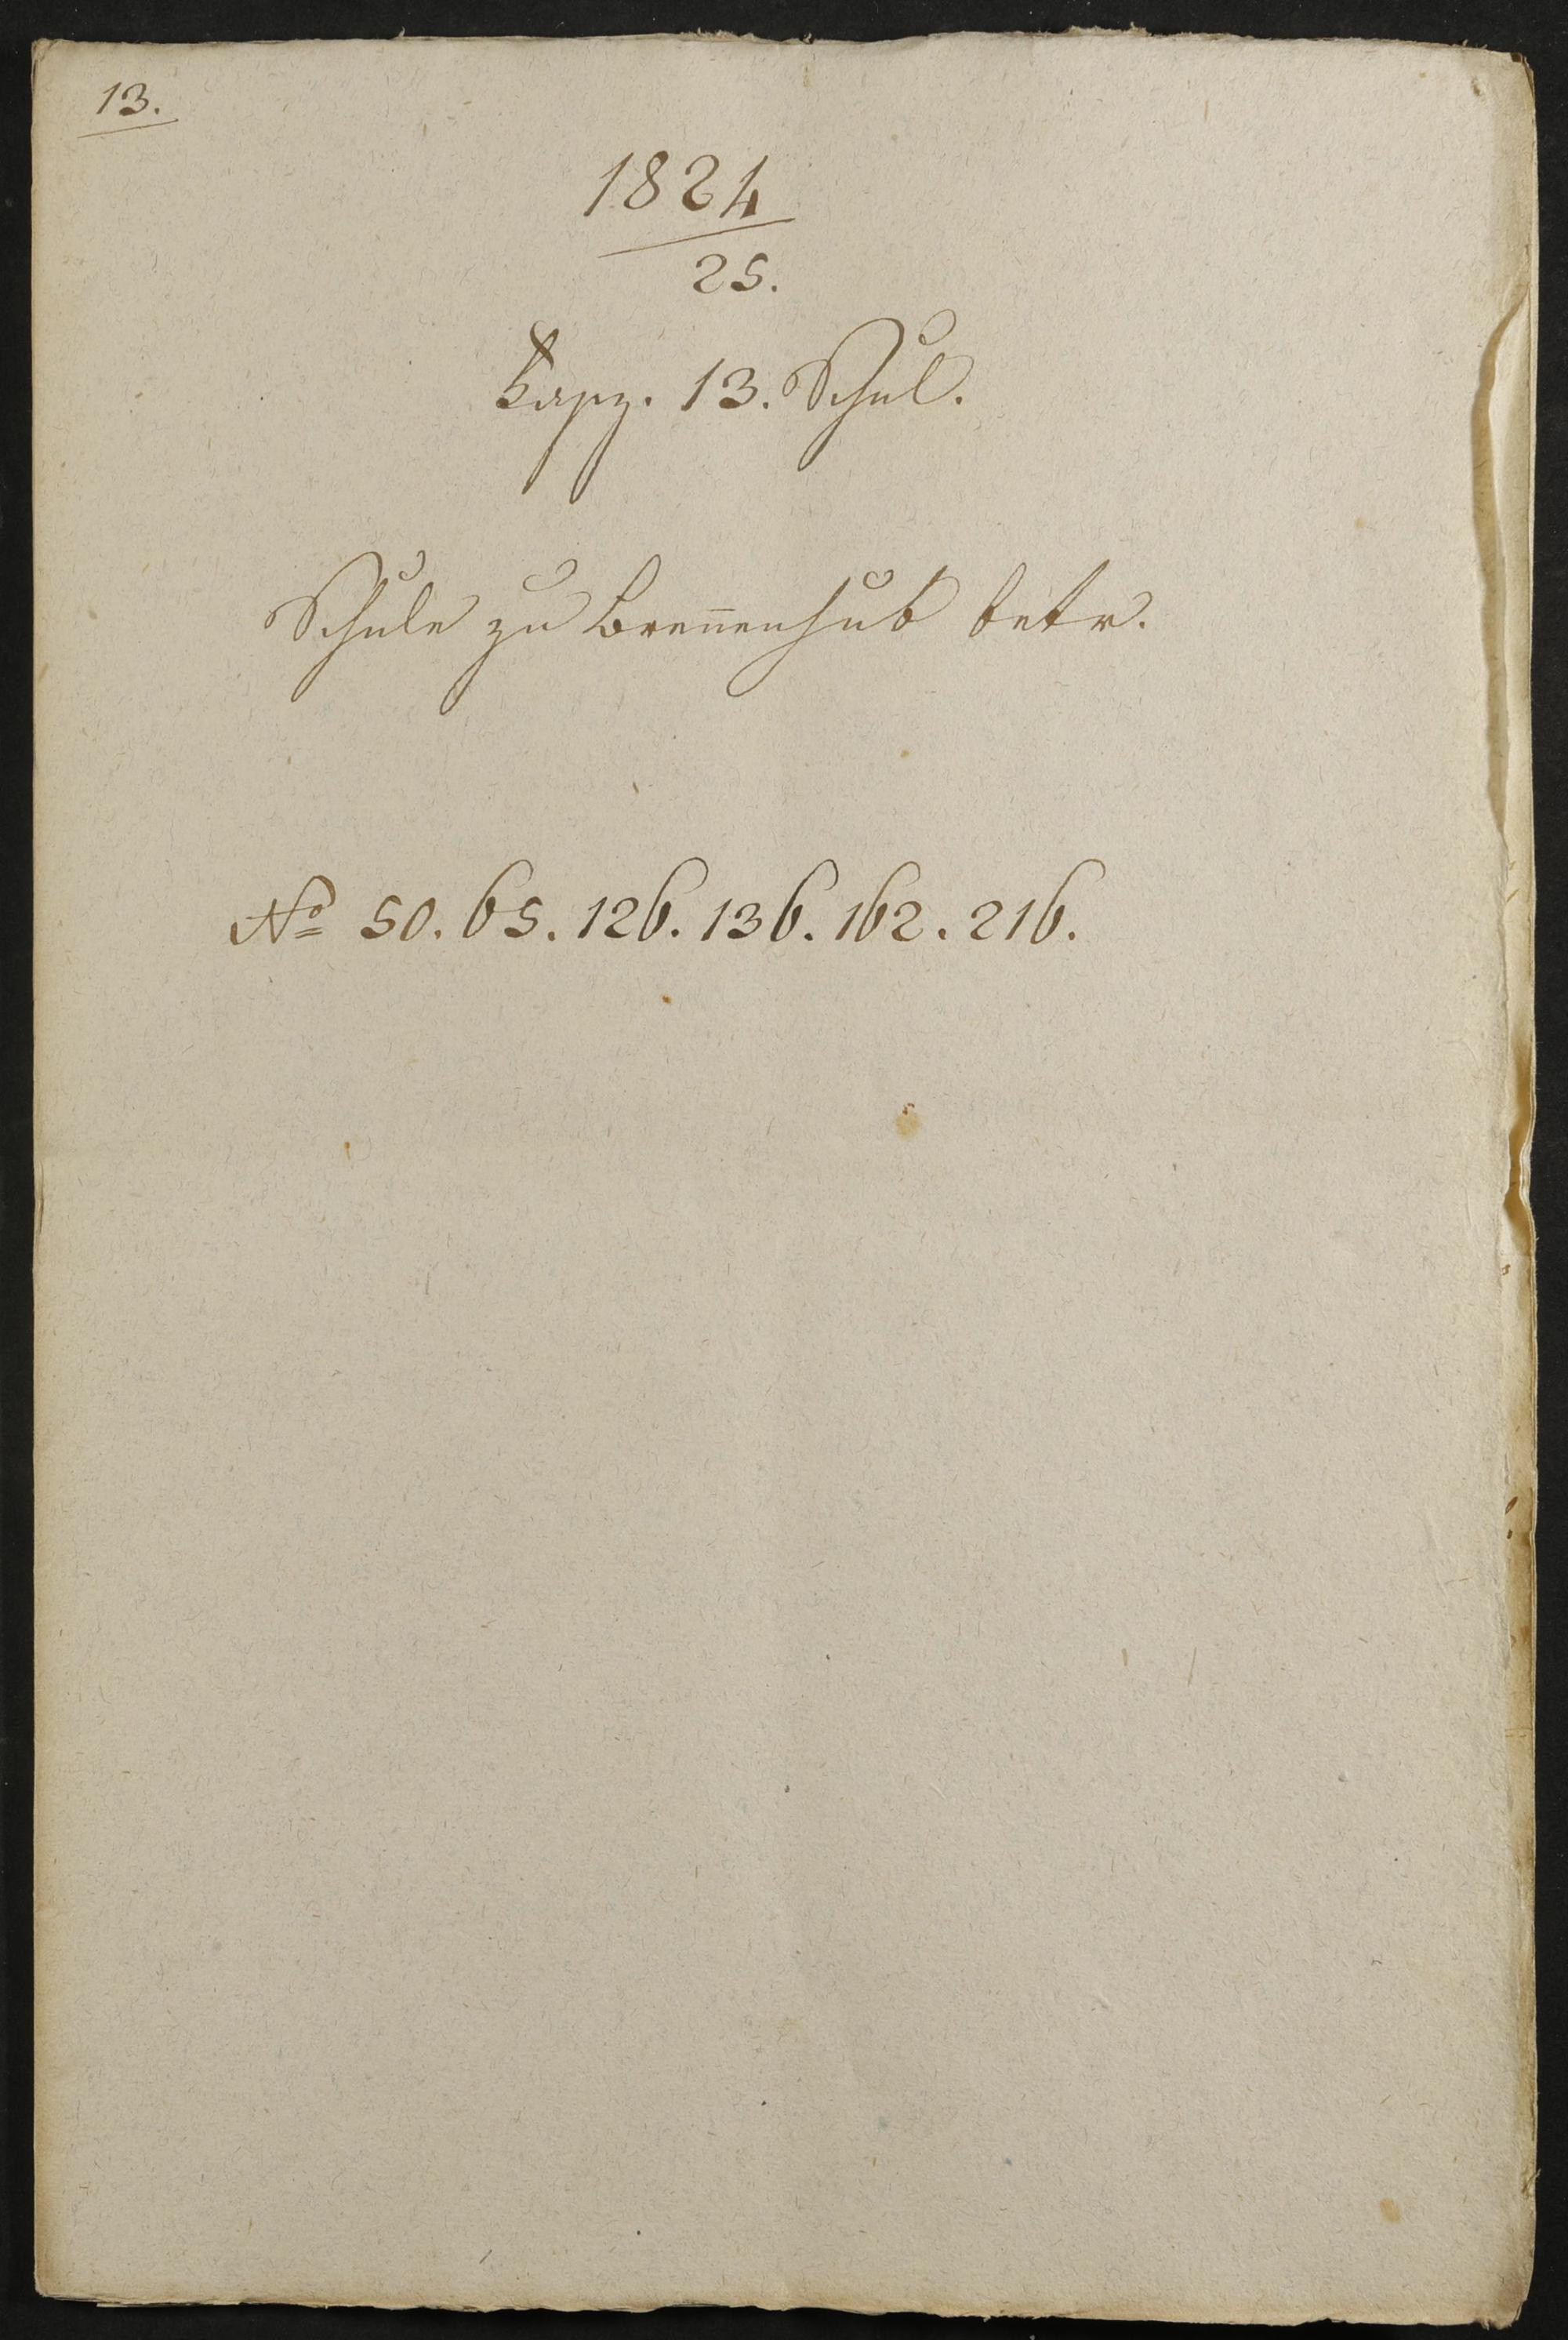 13.
1824
25.
Kapz. 13. Schul.
Schule zu Breñenhub betr.
No 50. 65. 126. 136. 162. 216.